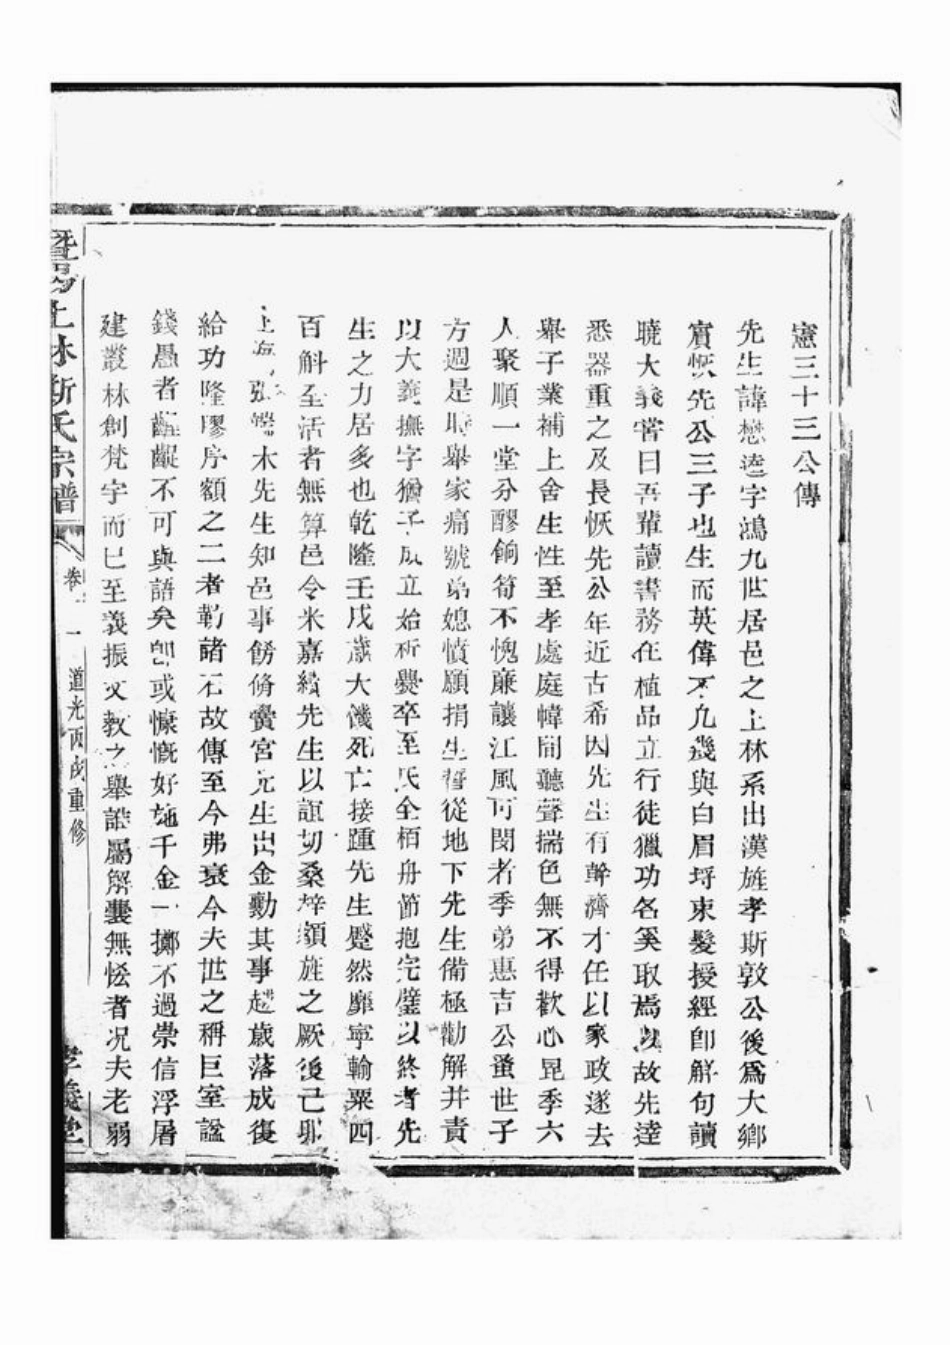 憲三十三公傳
先生諱懋逵字鴻九世居邑之上林系出漢旌孝斯敦公後爲大鄉
賓恢先公三子也生而英偉不凡幾與白眉埒束髮授經卽解句讀
曉大義嘗曰吾輩讀書務在植品立行徒獵功名奚取焉以故先達
悉器重之及長恢先公年近古希因先生有幹濟才任以家政遂去
舉子業補上舍生性至孝處庭幃間聽聲揣色無不得歡心昆季六
人聚順一堂分醪餉筍不愧廉讓江風可閔者季弟惠吉公蚤世子
方週是時舉家痛號弟媳憤願捐生誓從地下先生備極勸解幷責
以大義撫字猶子成立始析爨卒至氏全栢舟節抱完璧以終者先
生之力居多也乾隆壬戌歲大饑死亡接踵先生蹙然靡寧輸粟四
百斛全活者無算邑令米嘉績先生以誼切桑梓額旌之厥後己卯
上海張端木先生知邑事餝脩黌宮先生出金勷其事越歲落成復
給功隆膠序額之二者勒諸石故傳至今弗衰今夫世之稱巨室謚
錢愚者齷齪不可與語矣卽或慷慨好施千金一擲不過崇信浮屠
建叢林創梵宇而已至義振文教之舉誰屬解囊無恡者况夫老弱
暨陽上林斯氏宗譜
卷一 道光丙戌重修
孝義堂